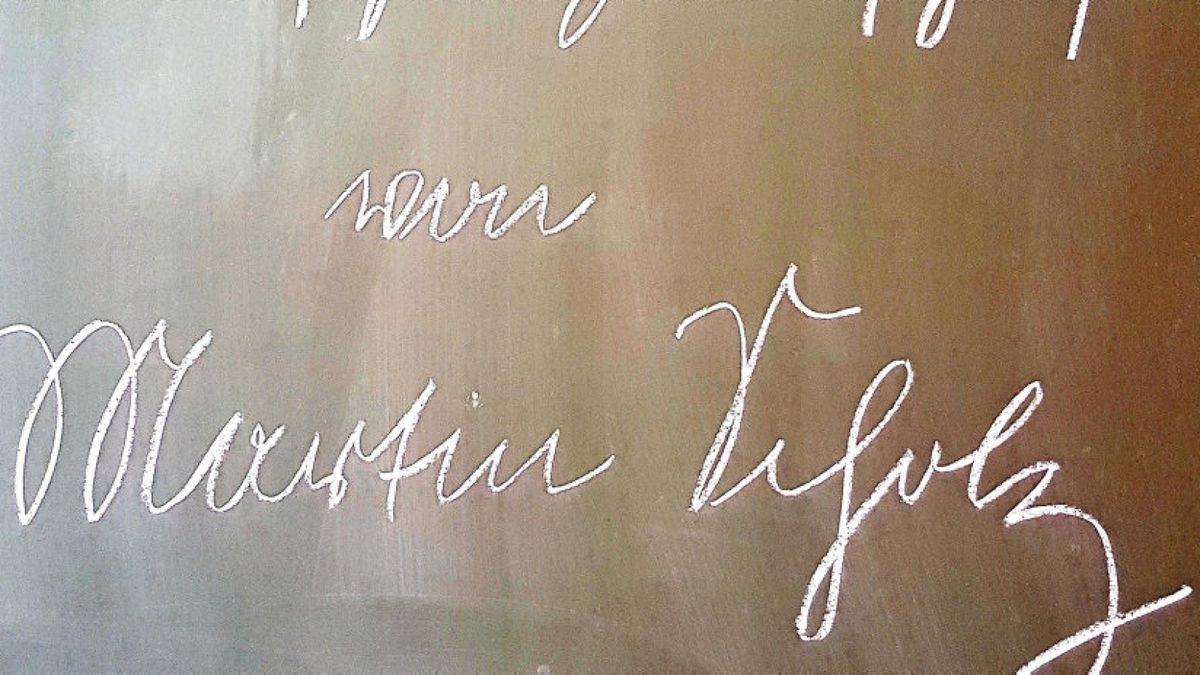 von
Martin Scholz